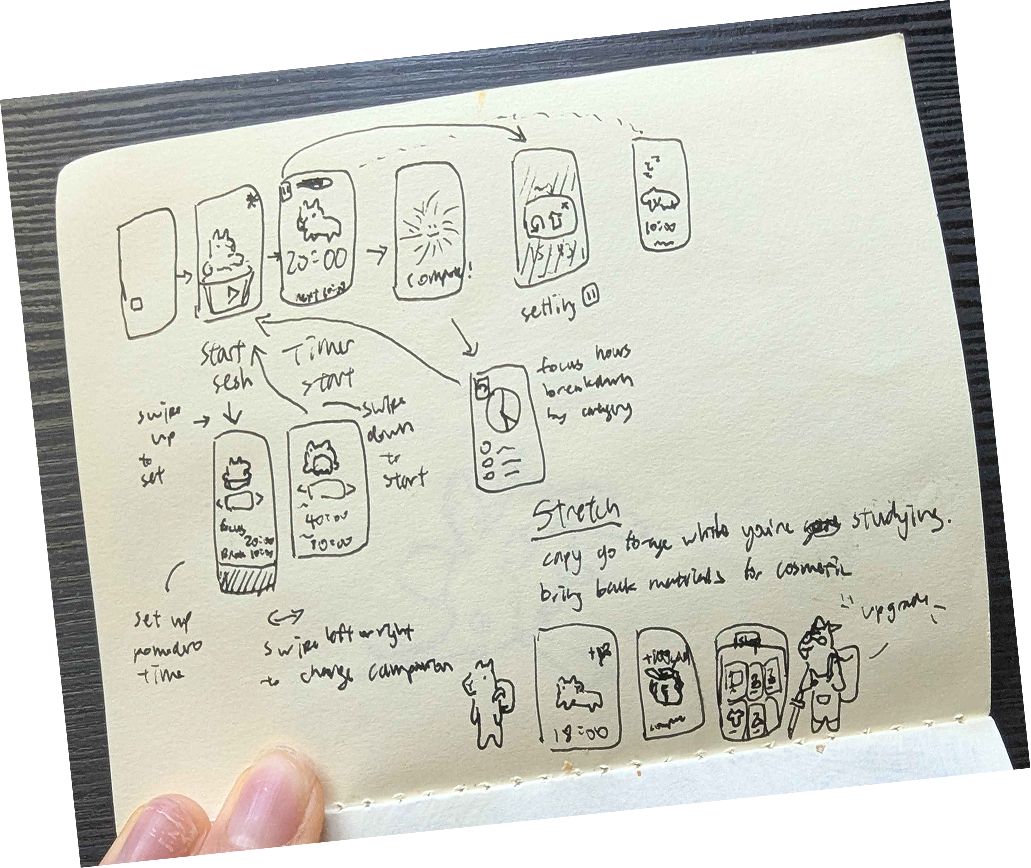 20:00
10:00
setting
start
sesh
Timer
start
focus hours
breakdown
by category
swipe
up
to
set
swipe
down
to
start
focus
20:00
Break 10:00
40:00
10:00
set up
pomodoro
time
swipe left or right
to change companion
Stretch
while you're studying.
bring back materials for cosmetic
upgrade
18:00